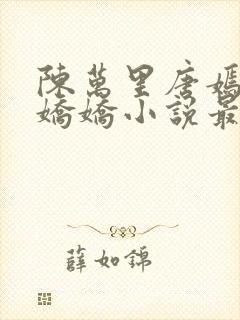 陳萬里唐嫣
嬌嬌小說最
薛如錦